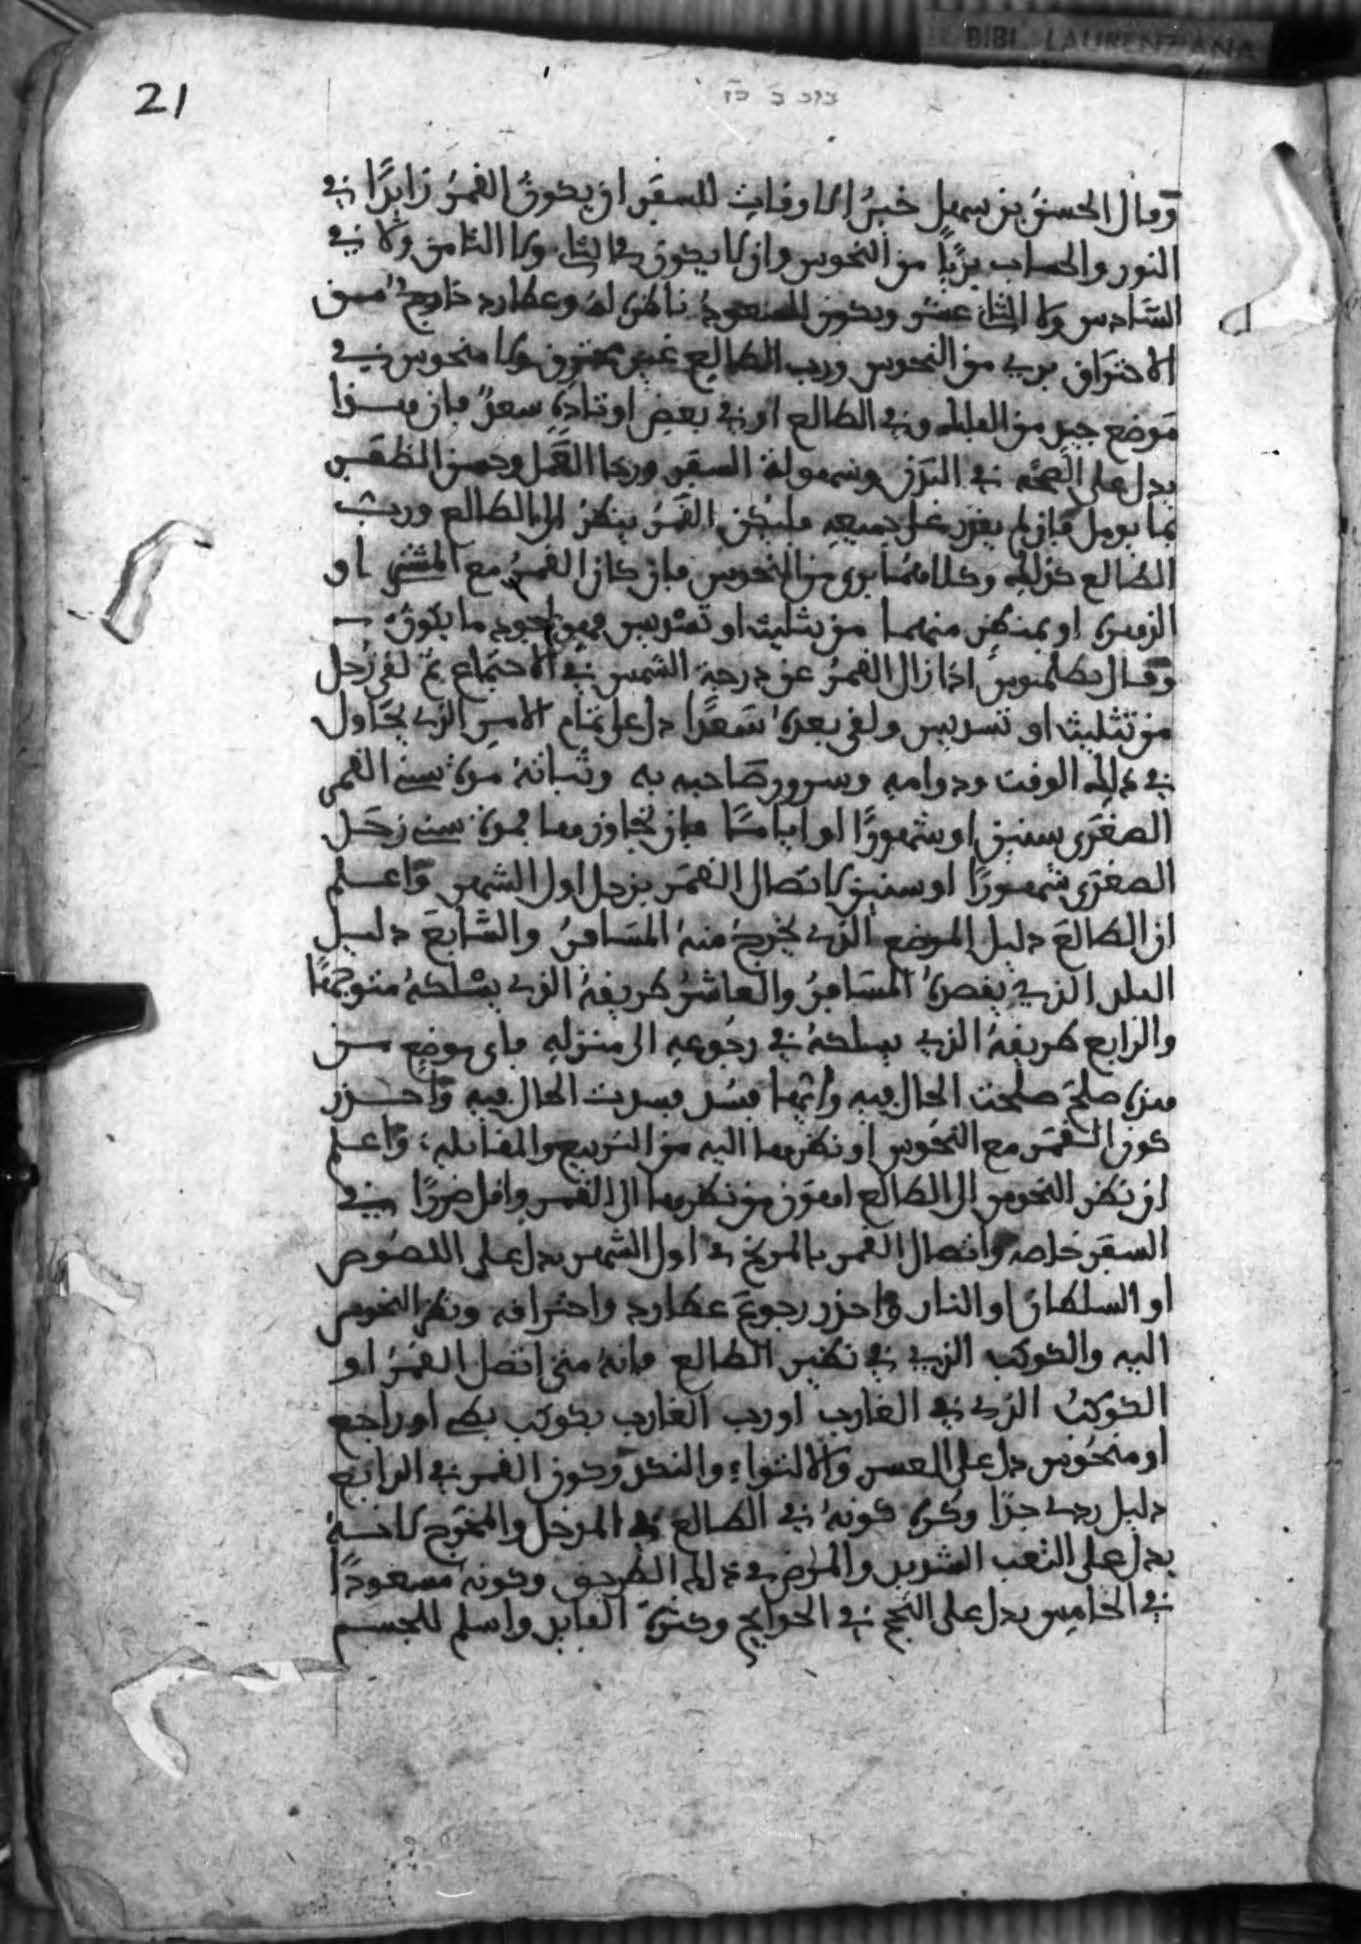 BIBL. LAURENZIANA
21
وقال الحسن بن سهل خير الاوقات للسفر ان يكون القمر زايدًا في
النور والحساب بريًا من النحوس وان لا يكون في الثاني ولا الثامن ولا في
السّادس ولا الثاني عشر ويكون السعود ناظرة له وعطارد خارج من
الاحتراق بري من النحوس ورب الطالع غير محترق ولا منحوس في
موضع جيد من الفلك وفي الطالع او في بعض اوتاده سعد فان هذا
يدل على الصحّة في البدن وسهولة السفر وربما العجل وحسن الظفر
بما يومل فان لم يقدر على جميعه فليكن القمر ينظر الى الطالع وربّ
الطالع كذلك وكلاهما بري من النحوس فان كان القمر مع المشتري او
الزهرة او بمنظر منهما من تثليث او تسديس فهو اجود ما يكون
وقال بطلميوس اذا زال القمر عن درجة الشمس في الاجتماع ثم لقي زحل
من تثليث او تسديس ولقي بعده سعدًا دل على تمام الامر الذي يحاول
في ذلك الوقت ودوامه وسرور صاحبه به وثباته مدة سني القمر
الصغرى سنين او شهورًا او اياما فان تجاوزها فمدة سني زحل
الصغرى شهورًا او سنين لاتصال القمر بزحل اول الشهر واعلم
ان الطالع دليل الموضع الذي يخرج منه المسافر والسّابع دليل
البلد الذي يقصده المسافر والعاشر طريقه الذي يسلكه متوجهًا
والرابع طريقه الذي يسلكه في رجوعه الى منزله فاي موضع من
هذه صلح صلحت الحال فيه وايّها فسد فسدت الحال فيه واحذر
كون القمر مع النحوس او نظرها اليه من التربيع والمقابله واعلم
ان نظر النحوس الى الطالع اهون من نظرها الى القمر واقل ضررًا في
السفر خاصه واتصال القمر بالمريخ في اول الشهر يدل على اللصوص
او السلطان او النار واحذر رجوع عطارد واحتراقه ونظر النحوس
اليه والكوكب الذي في نظير الطالع فانه متى اتصل القمر او
الكوكب الذي في الغارب او رب الغارب بكوكب بطي او راجع
او منحوس دل على العسر والالتواء والنكد وكون القمر في الرابع
دليل ردي جدًا وكره كونه في الطالع في المدخل والمخرج لانه
يدل على التعب الشديد والمرض في ذلك الطريق وكونه مسعودًا
في الخامس يدل على النجح في الحوايج وكثرة الفايد واسلم للجسم